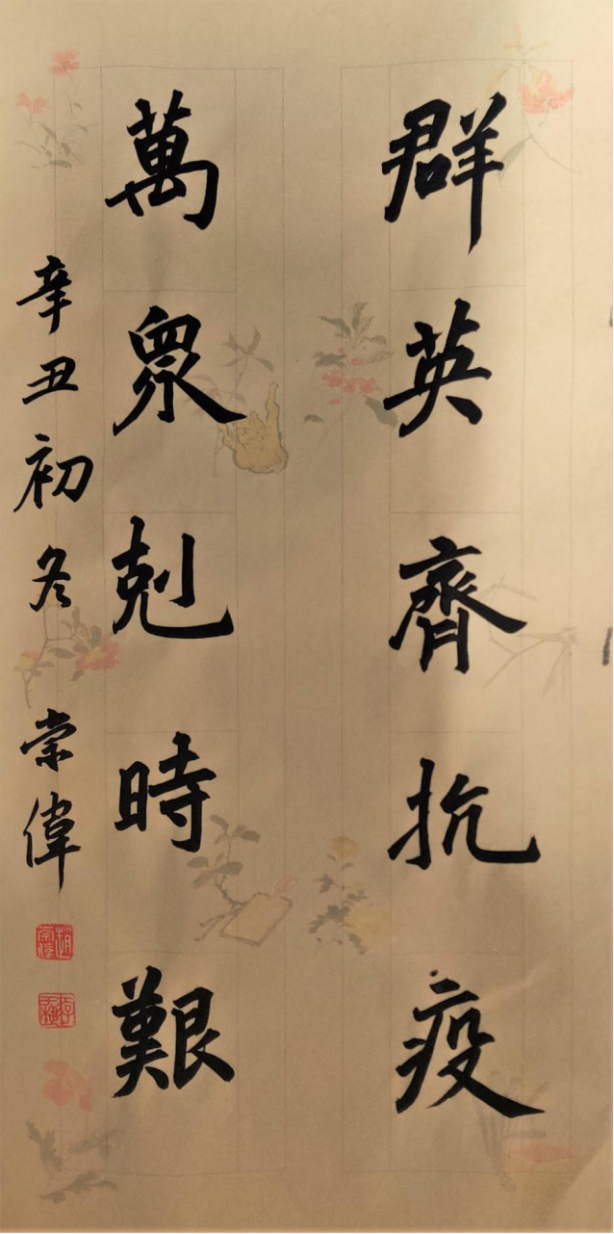 群英齊抗疫
萬眾剋時艱
辛丑初冬 崇偉